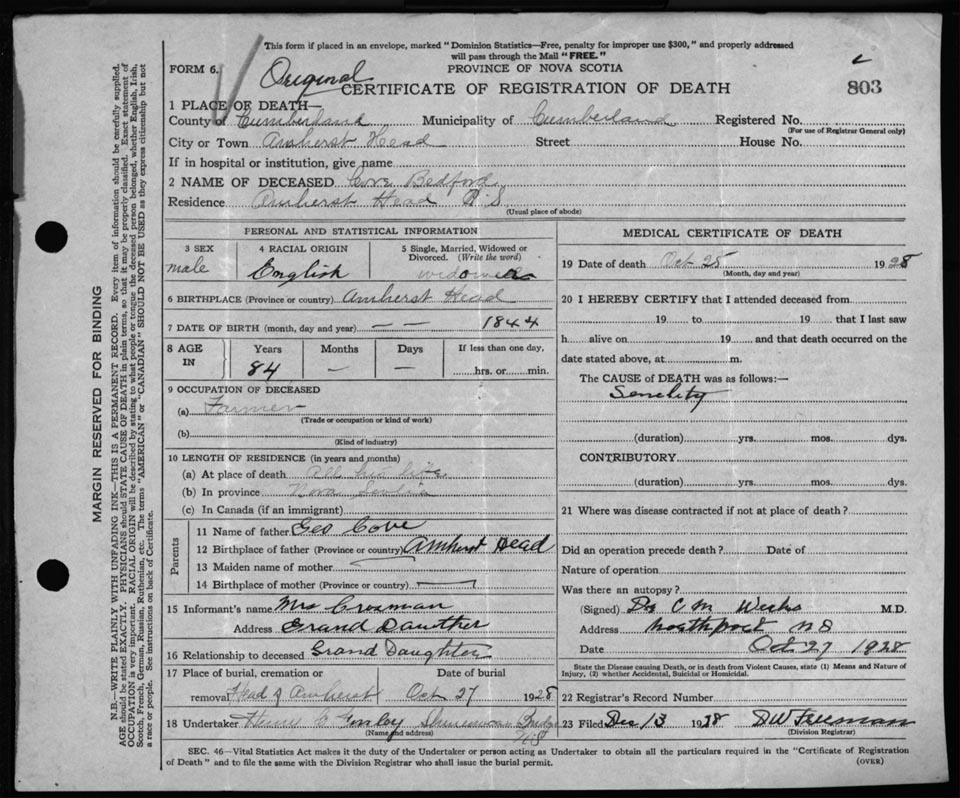 This form if placed in an envelope, marked "Dominion Statistics—Free, penalty for improper use $300," and properly addressed
will pass through the Mail "FREE."
FORM 6. PROVINCE OF NOVA SCOTIA
Original
CERTIFICATE OF REGISTRATION OF DEATH 803
1 PLACE OF DEATH—
County of Cumberland Municipality of Cumberland Registered No.
(For use of Registrar General only)
City or Town Amherst Head Street House No.
If in hospital or institution, give name
2 NAME OF DECEASED Cove Bedford
Residence Amherst Head N S
(Usual place of abode)
PERSONAL AND STATISTICAL INFORMATION
3 SEX 4 RACIAL ORIGIN 5 Single, Married, Widowed or
Divorced. (Write the word)
male English widowed
6 BIRTHPLACE (Province or country) Amherst Head
7 DATE OF BIRTH (month, day and year) — — 1844
8 AGE IN Years Months Days If less than one day,
84 — — hrs. or min.
9 OCCUPATION OF DECEASED
(a) Farmer
(Trade or occupation or kind of work)
(b)
(Kind of industry)
10 LENGTH OF RESIDENCE (in years and months)
(a) At place of death All his life
(b) In province Nova Scotia
(c) In Canada (if an immigrant)
Parents
11 Name of father Geo Cove
12 Birthplace of father (Province or country) Amherst Head
13 Maiden name of mother
14 Birthplace of mother (Province or country)
15 Informant's name Mrs Crosman
Address Grand Dawther
16 Relationship to deceased Grand Daughter
17 Place of burial, cremation or Date of burial
removal Head of Amherst Oct 27 1928
18 Undertaker Bridge
(Name and address) NS
MEDICAL CERTIFICATE OF DEATH
19 Date of death Oct 25 1928
(Month, day and year)
20 I HEREBY CERTIFY that I attended deceased from
19 to 19 that I last saw
h alive on 19 and that death occurred on the
date stated above, at m.
The CAUSE of DEATH was as follows:—
Senelity
(duration) yrs. mos. dys.
CONTRIBUTORY
(duration) yrs. mos. dys.
21 Where was disease contracted if not at place of death?
Did an operation precede death? Date of
Nature of operation
Was there an autopsy?
(Signed) Dr C M M.D.
Address Northport N S
Date Oct 27 1928
State the Disease causing Death, or in death from Violent Causes, state (1) Means and Nature of
Injury, (2) whether Accidental, Suicidal or Homicidal.
22 Registrar's Record Number
23 Filed Dec 13 1928 D W Freeman
(Division Registrar)
SEC. 46—Vital Statistics Act makes it the duty of the Undertaker or person acting as Undertaker to obtain all the particulars required in the "Certificate of Registration
of Death" and to file the same with the Division Registrar who shall issue the burial permit. (OVER)
MARGIN RESERVED FOR BINDING
N.B.—WRITE PLAINLY WITH UNFADING INK—THIS IS A PERMANENT RECORD. Every item of information should be carefully supplied.
AGE should be stated EXACTLY. PHYSICIANS should STATE CAUSE OF DEATH in plain terms, so that it may be properly classified. Exact statement of
OCCUPATION is very important. RACIAL ORIGIN will be described by stating to what people or tongue the deceased person belonged, whether English, Irish,
Scotch, French, German, Russian, Ruthenian, etc. The terms "AMERICAN" or "CANADIAN" SHOULD NOT BE USED as they express citizenship but not
a race or people. See instructions on back of Certificate.